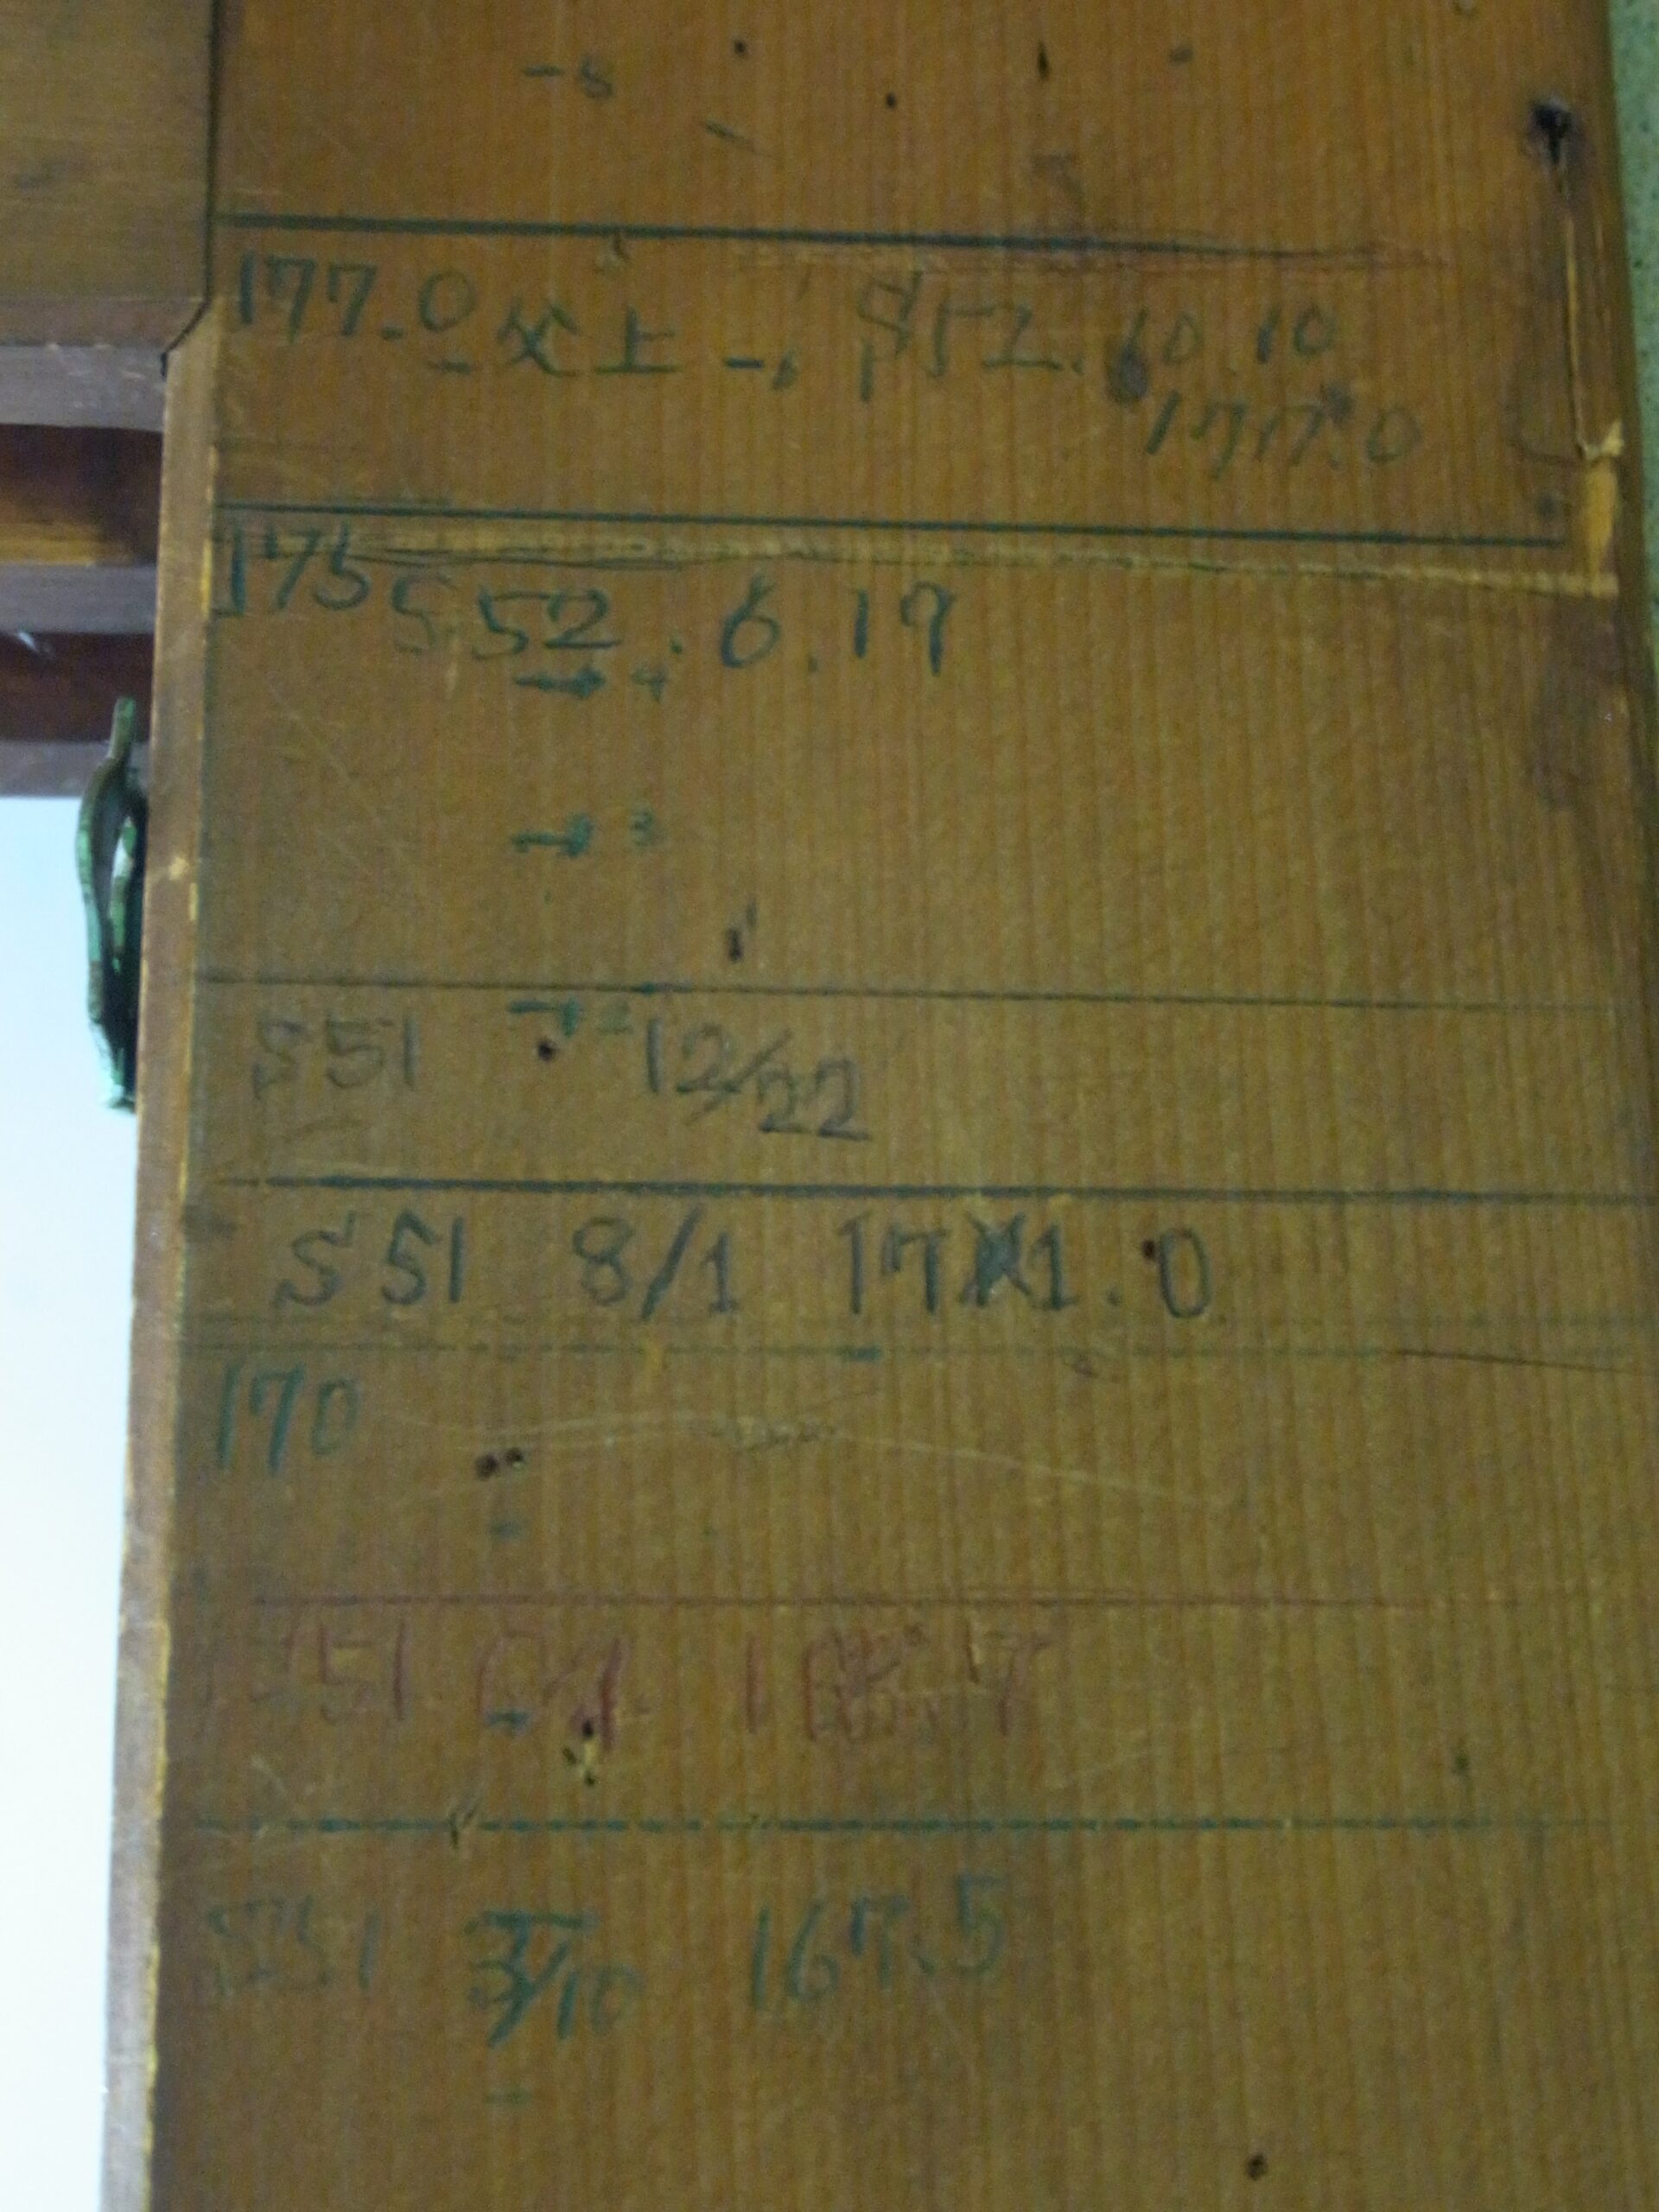 177.0 父上 S52.10.10
177.0
175 S52.6.17
4
3
2
S51 12/22
S51 8/1 171.0
170
S51
S51 3/10 167.5